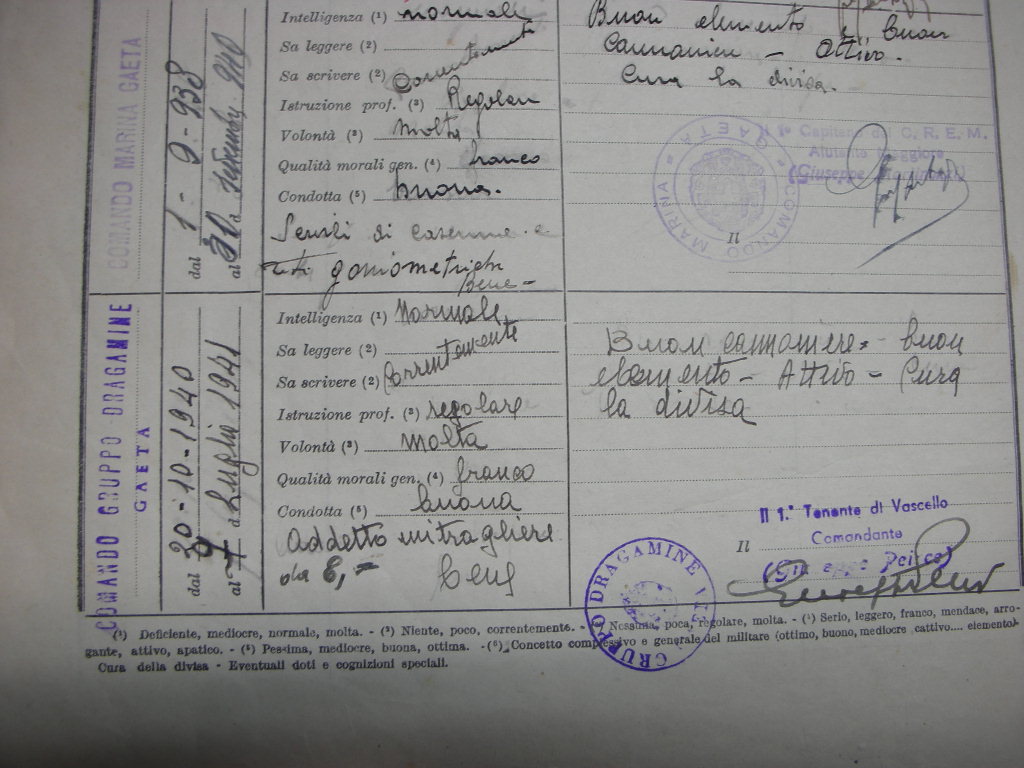 COMANDO MARINA GAETA
dal 1-9-938
al 30
Intelligenza (¹) normale
Sa leggere (²)
Sa scrivere (²) Correntemente
Istruzione prof. (³) Regolare
Volontà (³) molta
Qualità morali gen. (⁴) franco
Condotta (⁵) buona.
Servizi di caserma e
goniometrista
Bene-
Buon elemento, buon
Cannoniere - Attivo.
Cura la divisa.
COMANDO MARINA - GAETA
Il Capitano del C. R. E. M.
Aiutante Maggiore
(Giuseppe
Il
COMANDO GRUPPO DRAGAMINE
GAETA
dal 30-10-1940
al Luglio 1941
Intelligenza (¹) Normale
Sa leggere (²)
Sa scrivere (²) Correntemente
Istruzione prof. (³) regolare
Volontà (³) molta
Qualità morali gen. (⁴) franco
Condotta (⁵) buona
Addetto mitragliere
da 8,= Bene
Buon cannoniere - buon
elemento - Attivo - Cura
la divisa
Il 1.° Tenente di Vascello
Comandante
Il
GRUPPO DRAGAMINE
(¹) Deficiente, mediocre, normale, molta. - (²) Niente, poco, correntemente. - (³) Nessuna, poca, regolare, molta. - (⁴) Serio, leggero, franco, mendace, arro-
gante, attivo, apatico. - (⁵) Pessima, mediocre, buona, ottima. - (⁶) Concetto complessivo e generale del militare (ottimo, buono, mediocre, cattivo.... elemento)-
Cura della divisa - Eventuali doti e cognizioni speciali.